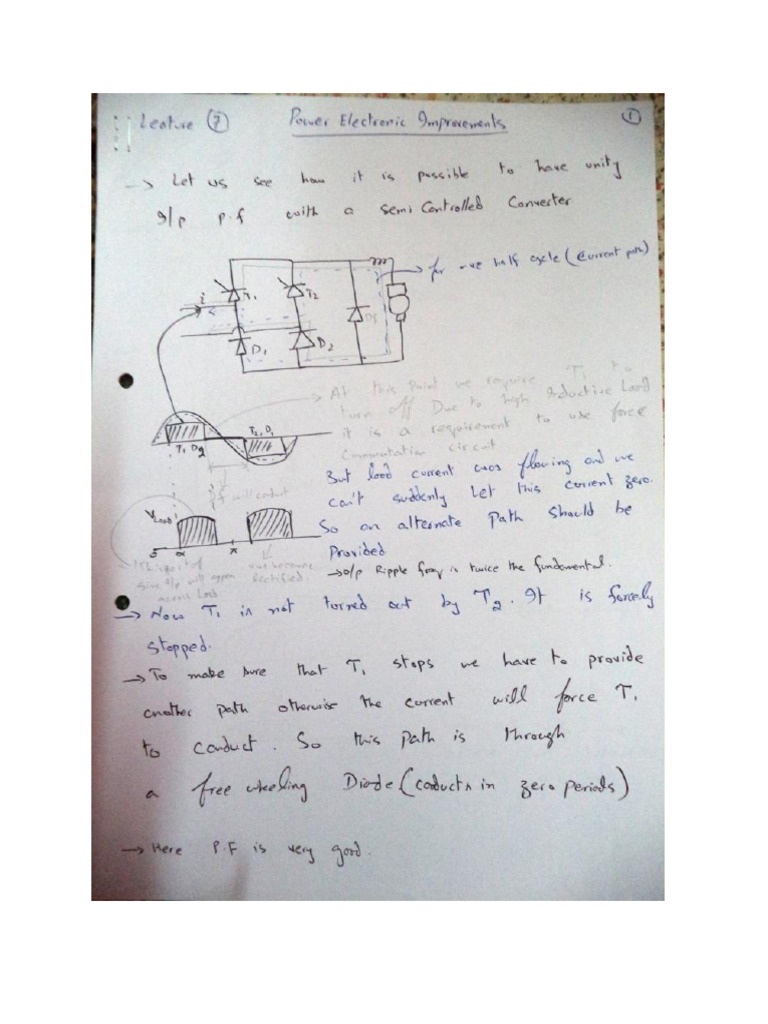 Lecture 7 Power Electronic Improvements 1
-> Let us see how it is possible to have unity
I/p p.f with a semi Controlled Converter
T1 T2
i
for -ve half cycle (Current path)
Df
D1 D2
-> At this point we require T1 to
turn off Due to high Inductive Load
it is a requirement to use force
Commutation circuit
T1 D2
T2, D1
Df will conduct
But load current was flowing and we
can't suddenly Let this current zero.
So an alternate Path should be
Provided
VLoad
0 α π
This part of
sine I/p will appear
across Load
-ve because
Rectified.
-> O/p Ripple freq is twice the fundamental.
-> Now T1 is not turned out by T2. It is forcely
stopped.
-> To make sure that T1 stops we have to provide
another path otherwise the current will force T1
to conduct. So this path is through
a free wheeling Diode (coductn in zero periods)
-> Here P.F is very good.